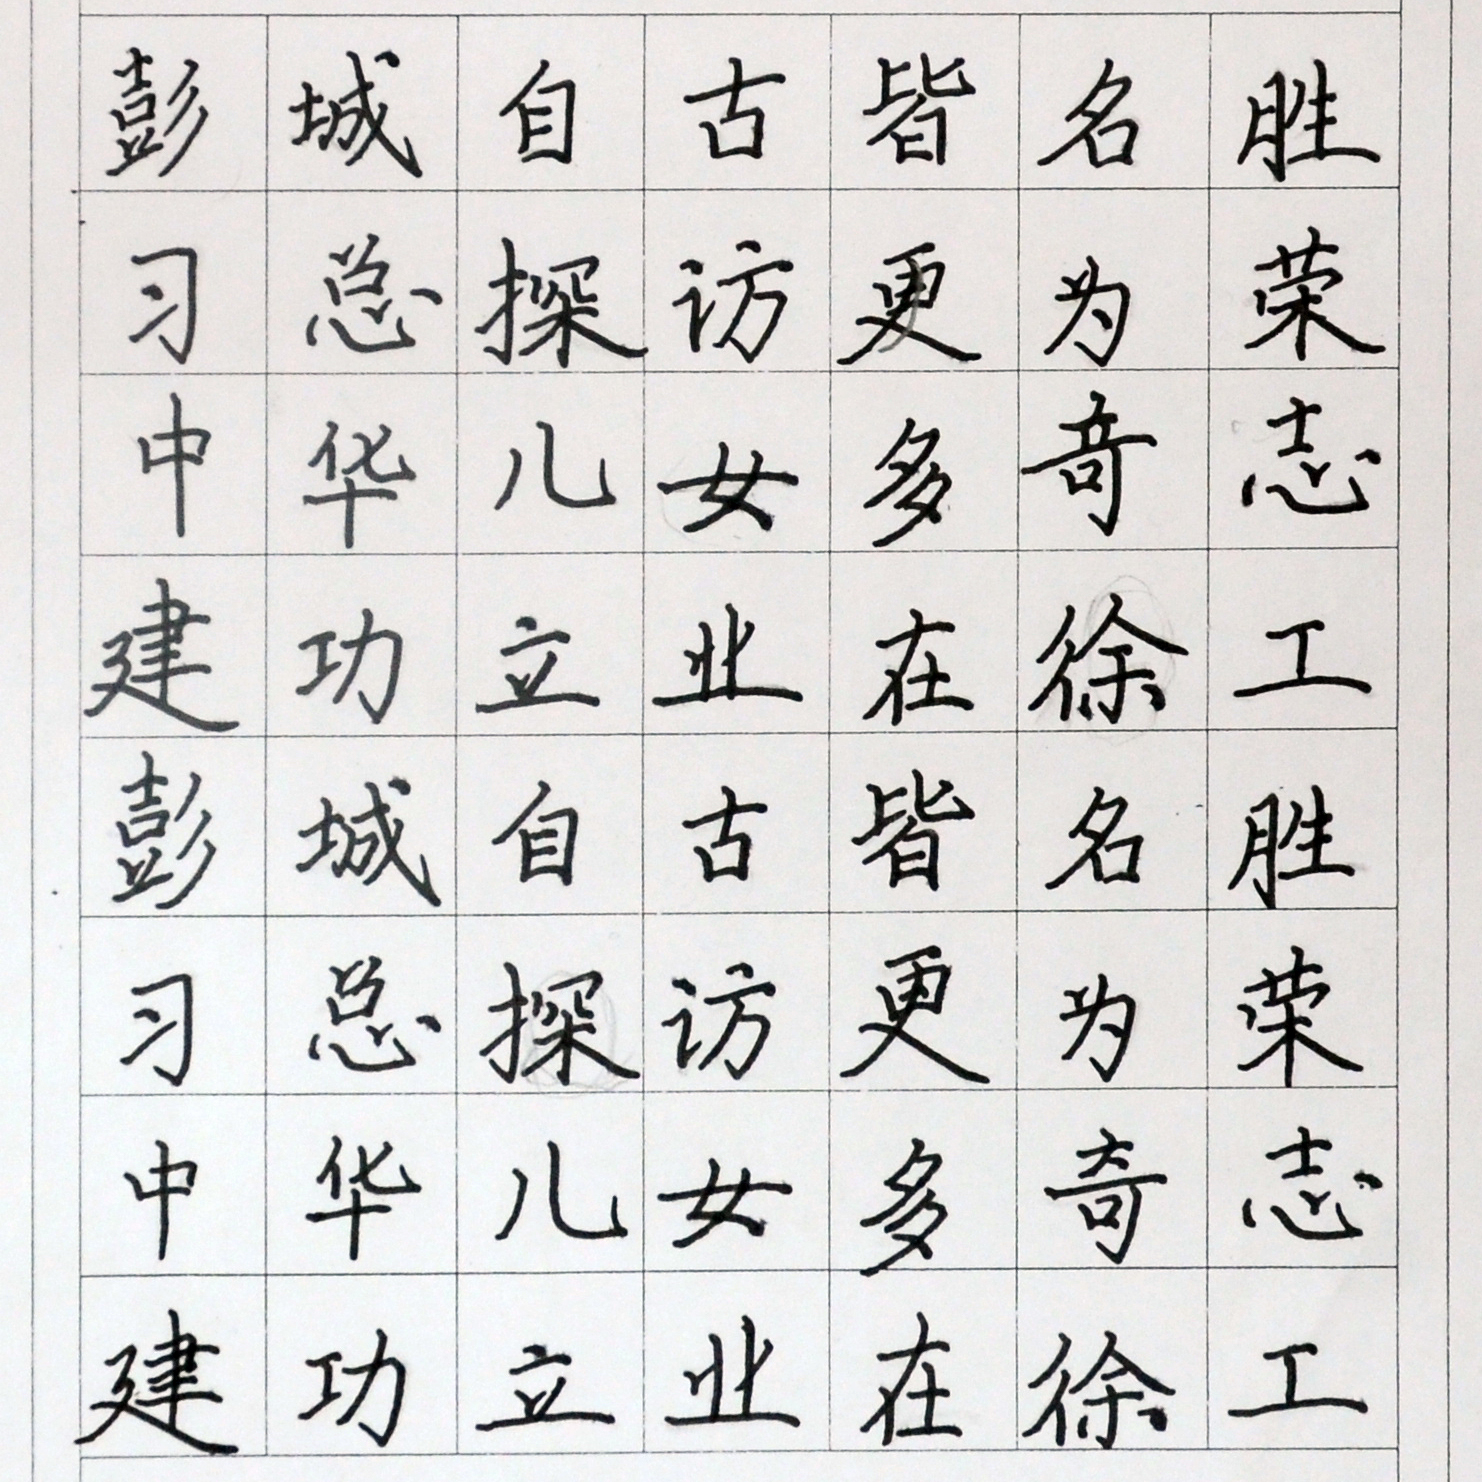 彭城自古皆名胜
习总探访更为荣
中华儿女多奇志
建功立业在徐工
彭城自古皆名胜
习总探访更为荣
中华儿女多奇志
建功立业在徐工